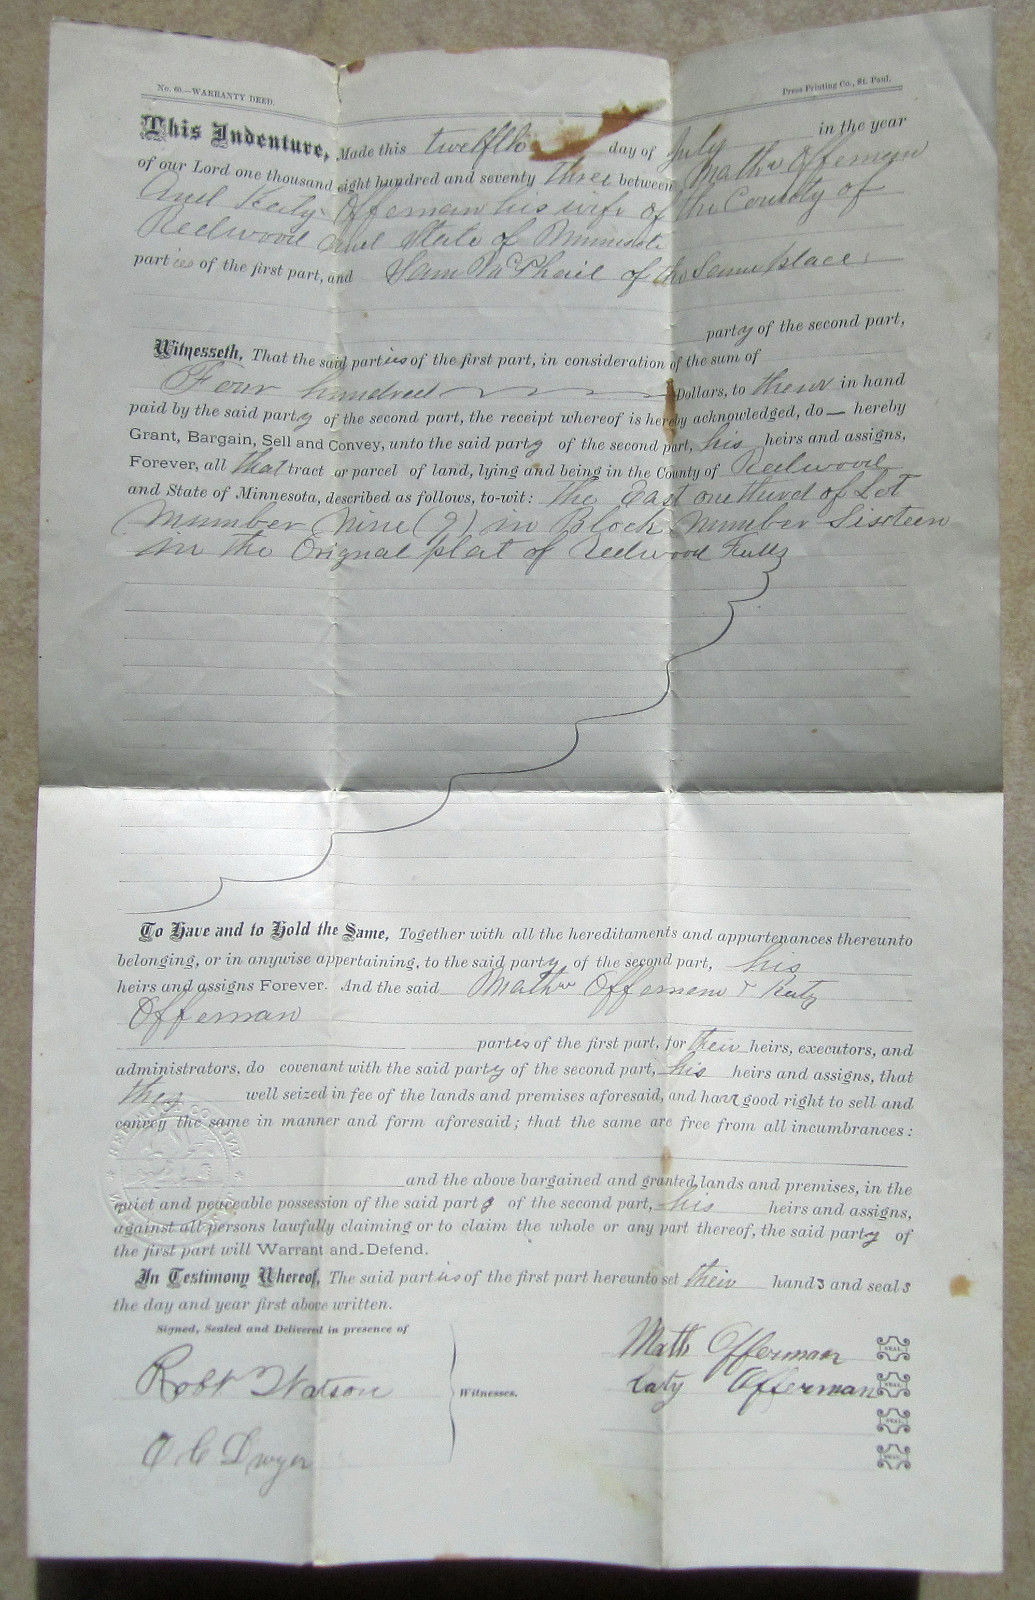 No. 60.—WARRANTY DEED.
Press Printing Co., St. Paul.
This Indenture, Made this twelfth day of July in the year
of our Lord one thousand eight hundred and seventy three between Mathw Offerman
And Katy Offerman his wife of the County of
Redwood and State of Minnesota
parties of the first part, and Sam McPhail of the Same place
party of the second part,
Witnesseth, That the said parties of the first part, in consideration of the sum of
Four hundred Dollars, to their in hand
paid by the said party of the second part, the receipt whereof is hereby acknowledged, do — hereby
Grant, Bargain, Sell and Convey, unto the said party of the second part, his heirs and assigns,
Forever, all that tract or parcel of land, lying and being in the County of Redwood
and State of Minnesota, described as follows, to-wit: The East one third of Lot
Number Nine (9) in Block Number Sixteen
in the Orignal plat of Redwood Falls
To Have and to Hold the Same, Together with all the hereditaments and appurtenances thereunto
belonging, or in anywise appertaining, to the said party of the second part, his
heirs and assigns Forever. And the said Mathw Offerman & Katy
Offerman
parties of the first part, for their heirs, executors, and
administrators, do covenant with the said party of the second part, his heirs and assigns, that
they well seized in fee of the lands and premises aforesaid, and have good right to sell and
convey the same in manner and form aforesaid; that the same are free from all incumbrances:
and the above bargained and granted lands and premises, in the
quiet and peaceable possession of the said party of the second part, his heirs and assigns,
against all persons lawfully claiming or to claim the whole or any part thereof, the said party of
the first part will Warrant and Defend.
In Testimony Whereof, The said parties of the first part hereunto set their hands and seals
the day and year first above written.
Signed, Sealed and Delivered in presence of
Math Offerman SEAL.
Robt Watson Witnesses. Caty Offerman SEAL.
SEAL.
Dwyer SEAL.